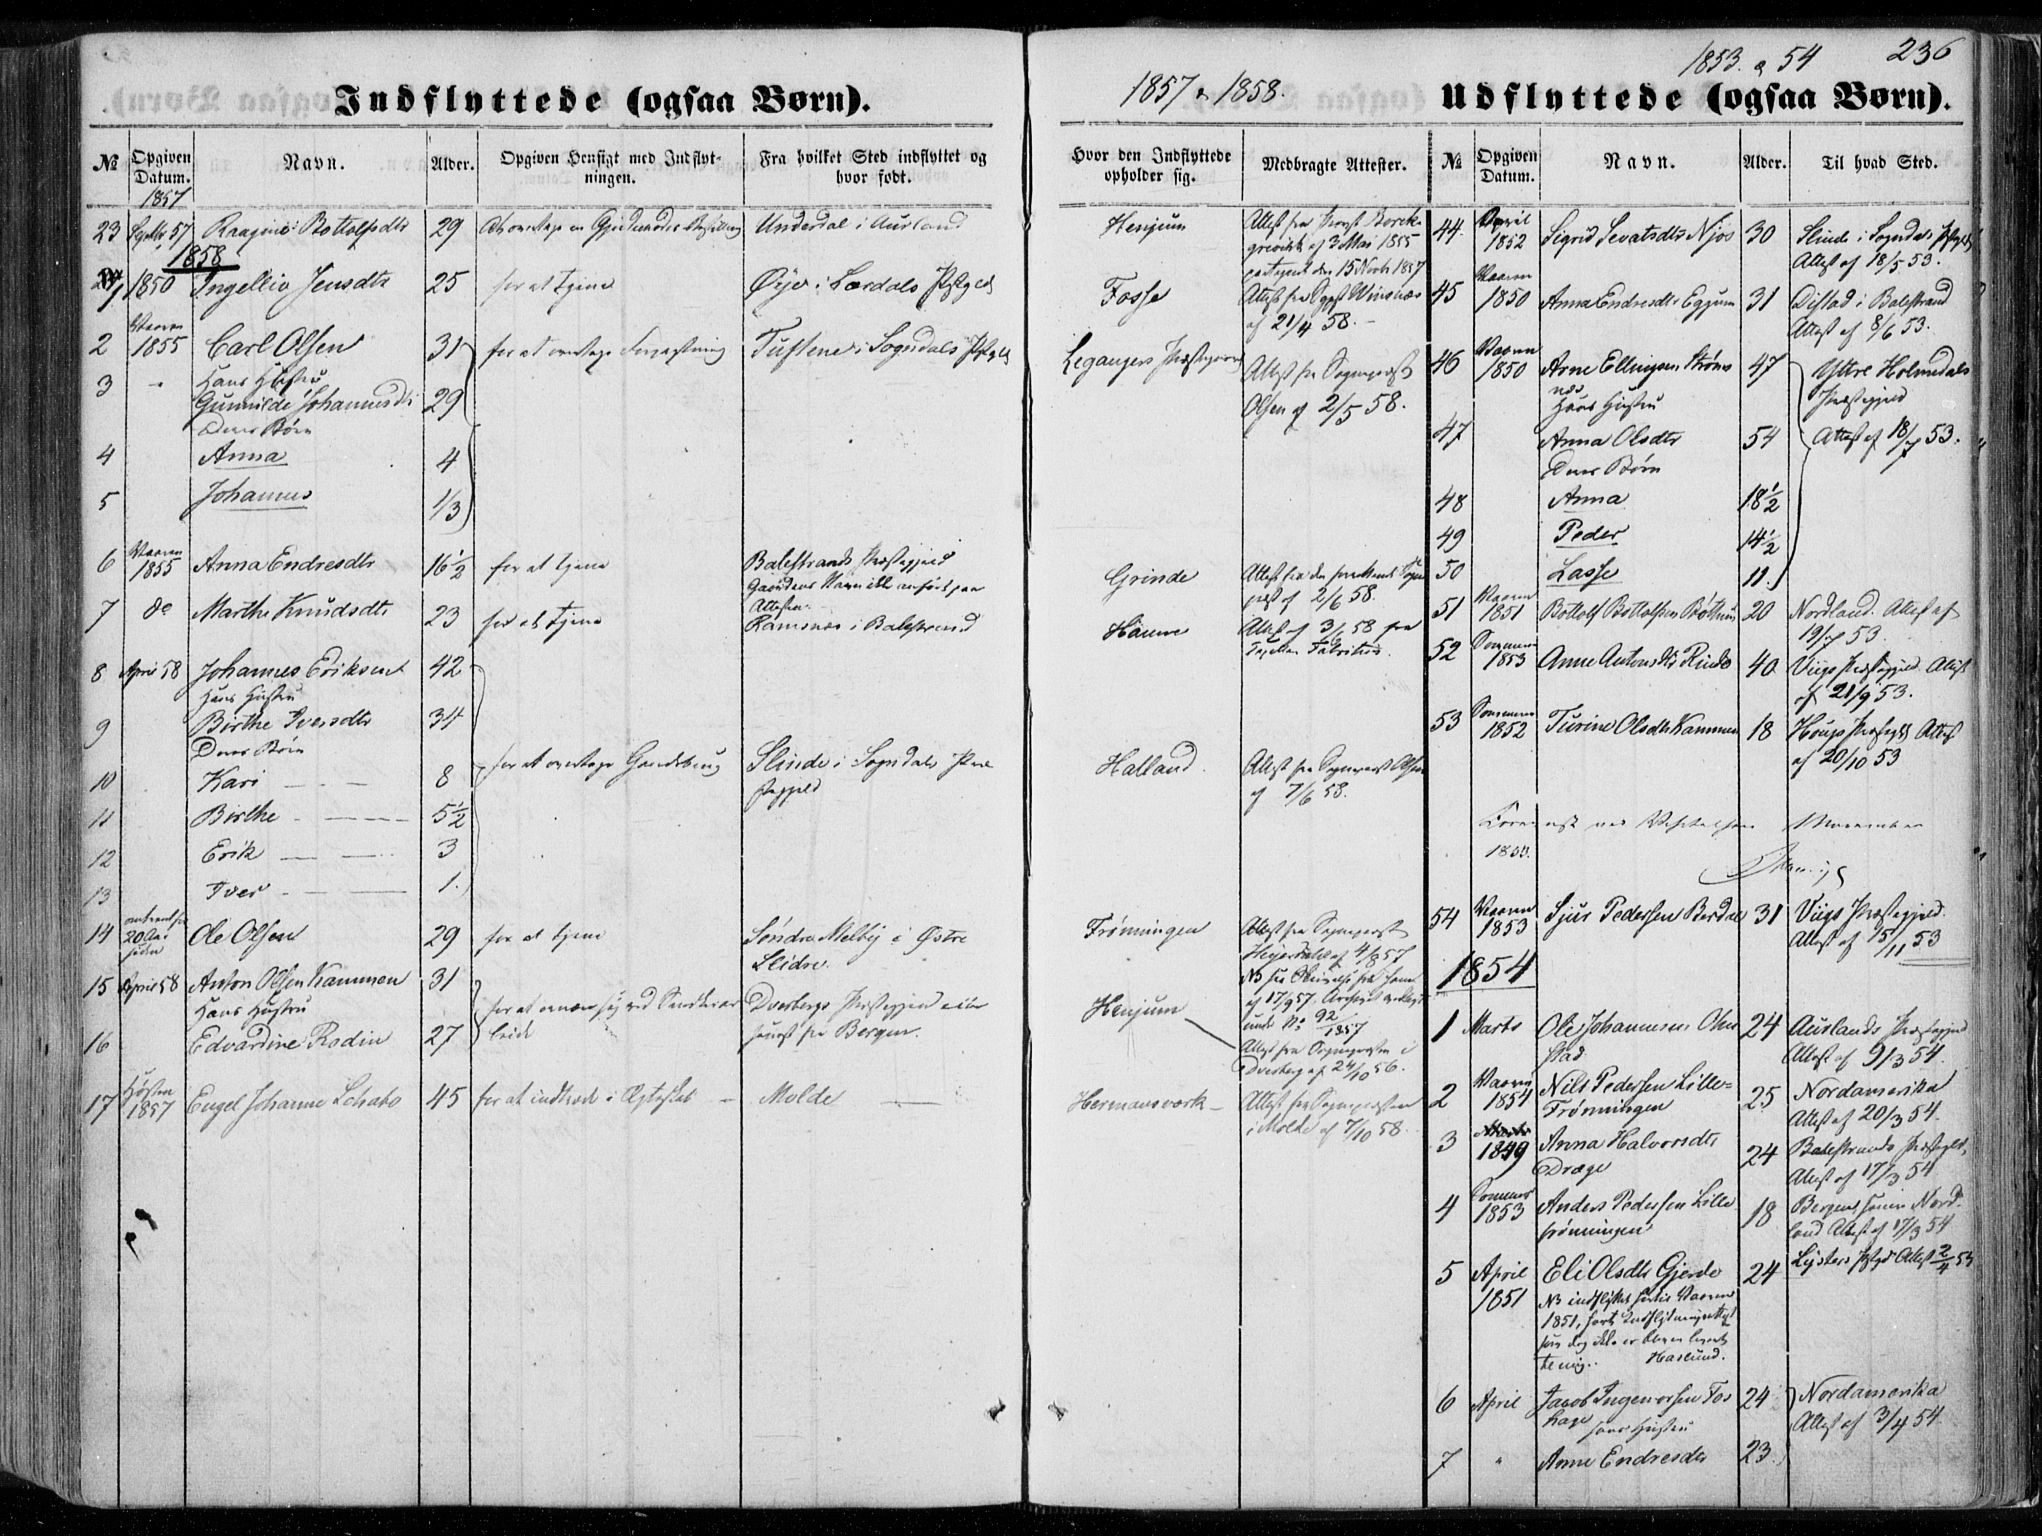 1853 & 54
236
1857 & 1858.
Indflyttede (ogsaa Børn).
Udflyttede (ogsaa Børn).
№
Opgiven Datum.
Navn.
Alder.
Opgiven Hensigt med Indflytningen.
Fra hvilket Sted indflyttet og hvor født.
Hvor den Indflyttede opholder sig.
Medbragte Attester.
№
Opgiven Datum.
Navn.
Alder.
Til hvad Sted.
1857
23 57 Botolfsdtr 29 Underdal i Aurland
Henjum
af 3 Mai 1855
15 Novbr 1857
1858
1 1850 Ingelliv Jensdtr 25 for at tjene Øye i Lærdals Pstgjeld
Fosse
af 21/4 58.
2 Vaaren 1855 Carl Olsen 31 for at overtage
Tuftene i Sogndals Pstgjeld
Leganger Præstegaard
3 " Hans Hustru
Gunnilde Johannesdtr 29
Olsen af 2/5 58.
Deres Børn
4 Anna 4
5 Johannes 1/3
6 Vaaren 1855 Anna Endresdtr 16½ for at tjene
Balestrands Præstegjeld
Gaardens Navn ikke anført paa Attesten
Grinde
af 2/6 58.
7 do Marthe Knudsdtr 23 for at tjene
Ramsnæs i Balestrand
Hamre
Attest af 3/6 58 fra
8 April 58 Johannes Eriksen 42
Hans Hustru
9 Birthe Iversdtr 34
Deres Børn
for at overtage Gaardsbrug
Slinde i Sogndals Præstegjeld
Halland
Attest fra Sognepræst Olsen
af 7/6 58.
10 Kari 8
11 Birthe 5½
12 Erik 3
13 Iver 1.
14 20 Aar siden Ole Olsen 29 for at tjene
Søndre Melby i Østre Slidre.
Frønningen
Attest fra Sognepræst
af 4/8 57
af 17/9 57.
No 92/1857
15 April 58 Anton Olsen Kammen 31
Hans Hustru
Dverbergs Præstegjeld
fra Bergen.
Henjum
Attest fra Sognepræsten i
Dverberg af 24/10 56.
16 Edvardine Rodin 27
17 Høsten 1857 Engel Johanne Schabo 45 for at indtræde i Ægteskab
Molde
Hermansværk
Attest fra Sognepræsten
i Molde af 7/10 58.
44 April 1852 Sigrid Sevatsdtr Njøs 30 Slinde i Sogndals Pstgjeld
Attest af 18/5 53.
45 Vaaren 1850 Anna Endresdtr Eggum 31 Distad i Balestrand
Attest af 8/6 53.
46 Vaaren 1850 Arne Ellingsen Strømnæs 47 Yttre Holmedals Præstegjeld
Hans Hustru
47 Anna Olsdtr 54 Attest af 18/7 53.
Deres Børn
48 Anna 18½
49 Peder 14½
50 Lasse 11.
51 Vaaren 1851 Bottolf Bottolfsen 20 Nordland. Attest af
19/7 53.
52 Sommer 1853 Anne Antonsdtr Rinde 40. Viigs Præstegjeld. Attest
af 21/9 53.
53 Sommer 1852 Turine Olsdtr Kammen 18 Hougs Præstegjeld Attest
af 20/10 53
November
1853.
54 Vaaren 1853 Sjur Pedersen Berdal 31 Viigs Præstegjeld.
Attest af 15/11 53
1854
1 Marts Ole Johannesen Ohnstad 24 Aurlands Præstegjeld
Attest af 9/3 54.
2 Vaaren 1854 Nils Pedersen Lille-Frønningen 25 Nordamerika
Attest af 20/3 54.
3 1849 Anna Halvorsdtr Dræge 24 Balestrands Præstegjeld,
Attest af 17/3 54
4 Sommer 1853 Anders Pedersen Lillefrønningen 18 Bergen senere Nordland Attest af 17/3 54
5 April 1851 Eli Olsdtr Gjerde 24 Lysters Pstgjd Attest 2/4 53
NB indflyttet hertil Vaaren
1851,
Haslund.
6 April Jacob Ingeversen Foshage 24 Nordamerika
hans Hustru Attest af 3/4 54
7 " Anne Endresdtr 23.